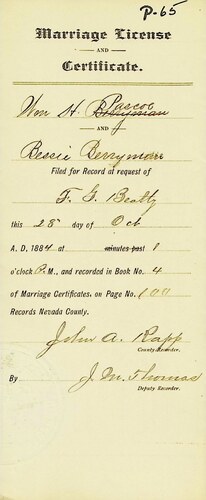 P-65
Marriage License
AND
Certificate.
Pascoe
Wm H. Berryman
AND
Bessie Berryman
Filed for Record at request of
F. G. Beatty
this 28 day of Oct
A. D. 1884 at minutes past 1
o'clock P.M., and recorded in Book No. 4
of Marriage Certificates, on Page No. 100
Records Nevada County.
John A. Rapp
County Recorder.
By J. M. Thomas
Deputy Recorder.